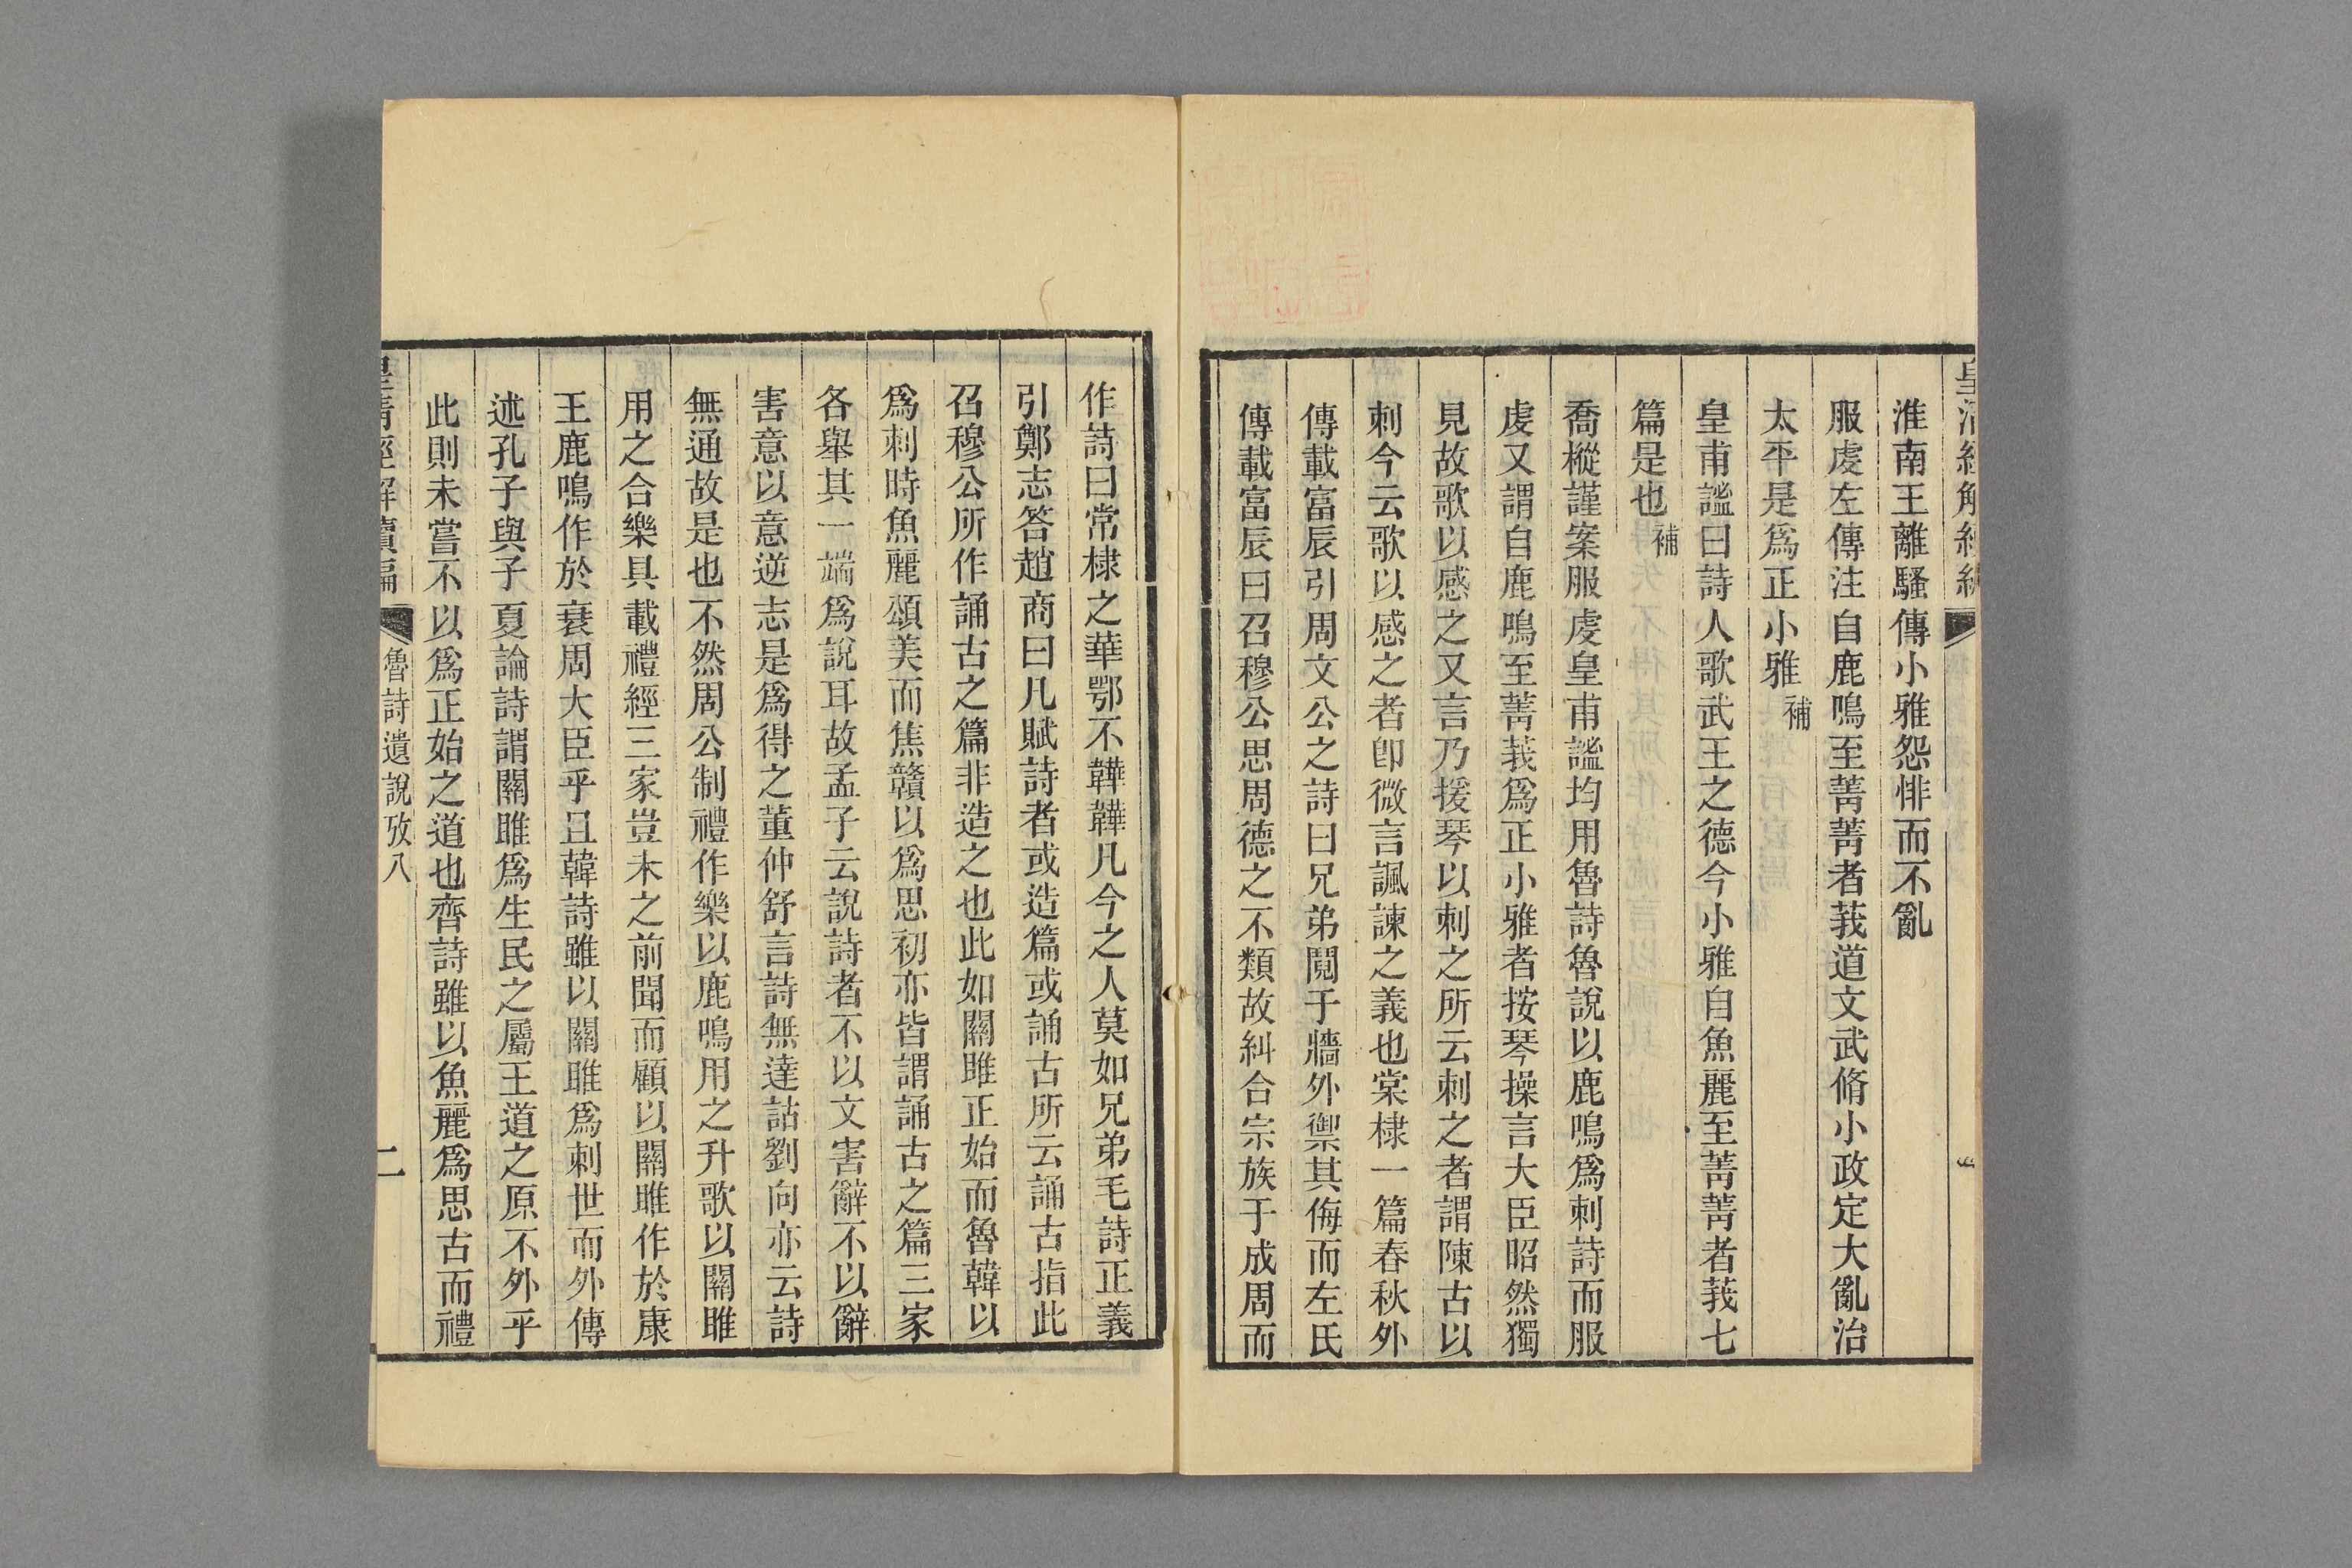 皇清經解續編
淮南王離騷傳小雅怨悱而不亂
服虔左傳注自鹿鳴至菁菁者莪道文武脩小政定大亂治
太平是爲正小雅補
皇甫謐曰詩人歌武王之德今小雅自魚麗至菁菁者莪七
篇是也補
喬樅謹案服虔皇甫謐均用魯詩魯說以鹿鳴爲刺詩而服
虔又謂自鹿鳴至菁莪爲正小雅者按琴操言大臣昭然獨
見故歌以感之又言乃援琴以刺之所云刺之者謂陳古以
刺今云歌以感之者卽微言諷諫之義也棠棣一篇春秋外
傳載富辰引周文公之詩曰兄弟鬩于牆外禦其侮而左氏
傳載富辰曰召穆公思周德之不類故糾合宗族于成周而
作詩曰常棣之華鄂不韡韡凡今之人莫如兄弟毛詩正義
引鄭志答趙商曰凡賦詩者或造篇或誦古所云誦古指此
召穆公所作誦古之篇非造之也此如關雎正始而魯韓以
爲刺時魚麗頌美而焦贛以爲思初亦皆謂誦古之篇三家
各舉其一端爲說耳故孟子云說詩者不以文害辭不以辭
害意以意逆志是爲得之董仲舒言詩無達詁劉向亦云詩
無通故是也不然周公制禮作樂以鹿鳴用之升歌以關雎
用之合樂具載禮經三家豈未之前聞而顧以關雎作於康
王鹿鳴作於衰周大臣乎且韓詩雖以關雎爲刺世而外傳
述孔子與子夏論詩謂關雎爲生民之屬王道之原不外乎
此則未嘗不以爲正始之道也齊詩雖以魚麗爲思古而禮
皇清經解續編 魯詩遺說攷八 二